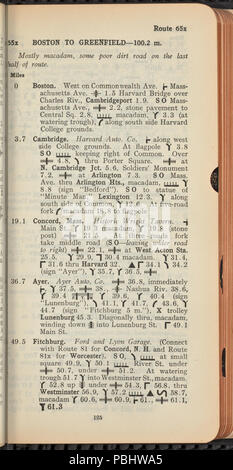 Route 65x
65x BOSTON TO GREENFIELD—100.2 m.
Mostly macadam, some poor dirt road on the last
half of route.
Miles
0 Boston. West on Commonwealth Ave. Mass-
achusetts Ave. 1.5 Harvard Bridge over
Charles Riv., Cambridgeport 1.9. SO Mass-
achusetts Ave., 2.2, stone pavement to
Central Sq. 2.8, macadam, 3.3 (at
watering trough), along south side Harvard
College grounds.
3.7 Cambridge. Harvard Auto. Co. along west
side College grounds. At flagpole 3.8
SO keeping right of Common. Over
4.8, thru Porter Square. at
N. Cambridge Jct. 5.6, Soldiers' Monument
7.2, at Arlington 7.3. SO Mass.
Ave. thru Arlington Hts., macadam,
8.8 (sign "Bedford"). SO to statue of
"Minute Man" Lexington 12.3, along
south side of
fork
19.1 Concord.
Main S
post)
take middle road (SO—leaving
to right) 22.1, at West Acton Sta.
25.5, 29.9, 30.4 macadam. 31.4,
31.6 thru Harvard 32. 34.1 34.2
(sign "Ayer"), 35.7, 36.5,
36.7 Ayer. Ayer Auto Co. 36.8, immediately
37.5, 38. Nashua Riv. 38.6,
39.4 39.6, 40.4 (sign
"Lunenburg"), 41.1, 41.7, 43.6,
44.7 (sign "Fitchburg 5 m."), X trolley
Lunenburg 45.3. Diagonally thru, macadam,
winding down into Lunenburg St. 49.1
Main St.
49.5 Fitchburg. Ford and Lyon Garage. (Connect
with Route 81 for Concord, N. H. and Route
81x for Worcester). SO, at small
square 49.9, 50.1 River St. under
50.7, under 51.2. At watering
trough 51.7 into Westminster St., macadam,
52.8 up under 54.3, 56.8, thru
Westminster 56.9, 57.2 58.7,
macadam 60.6, 60.9, 61., 61.1,
61.3
125
alamy
PBHWA5